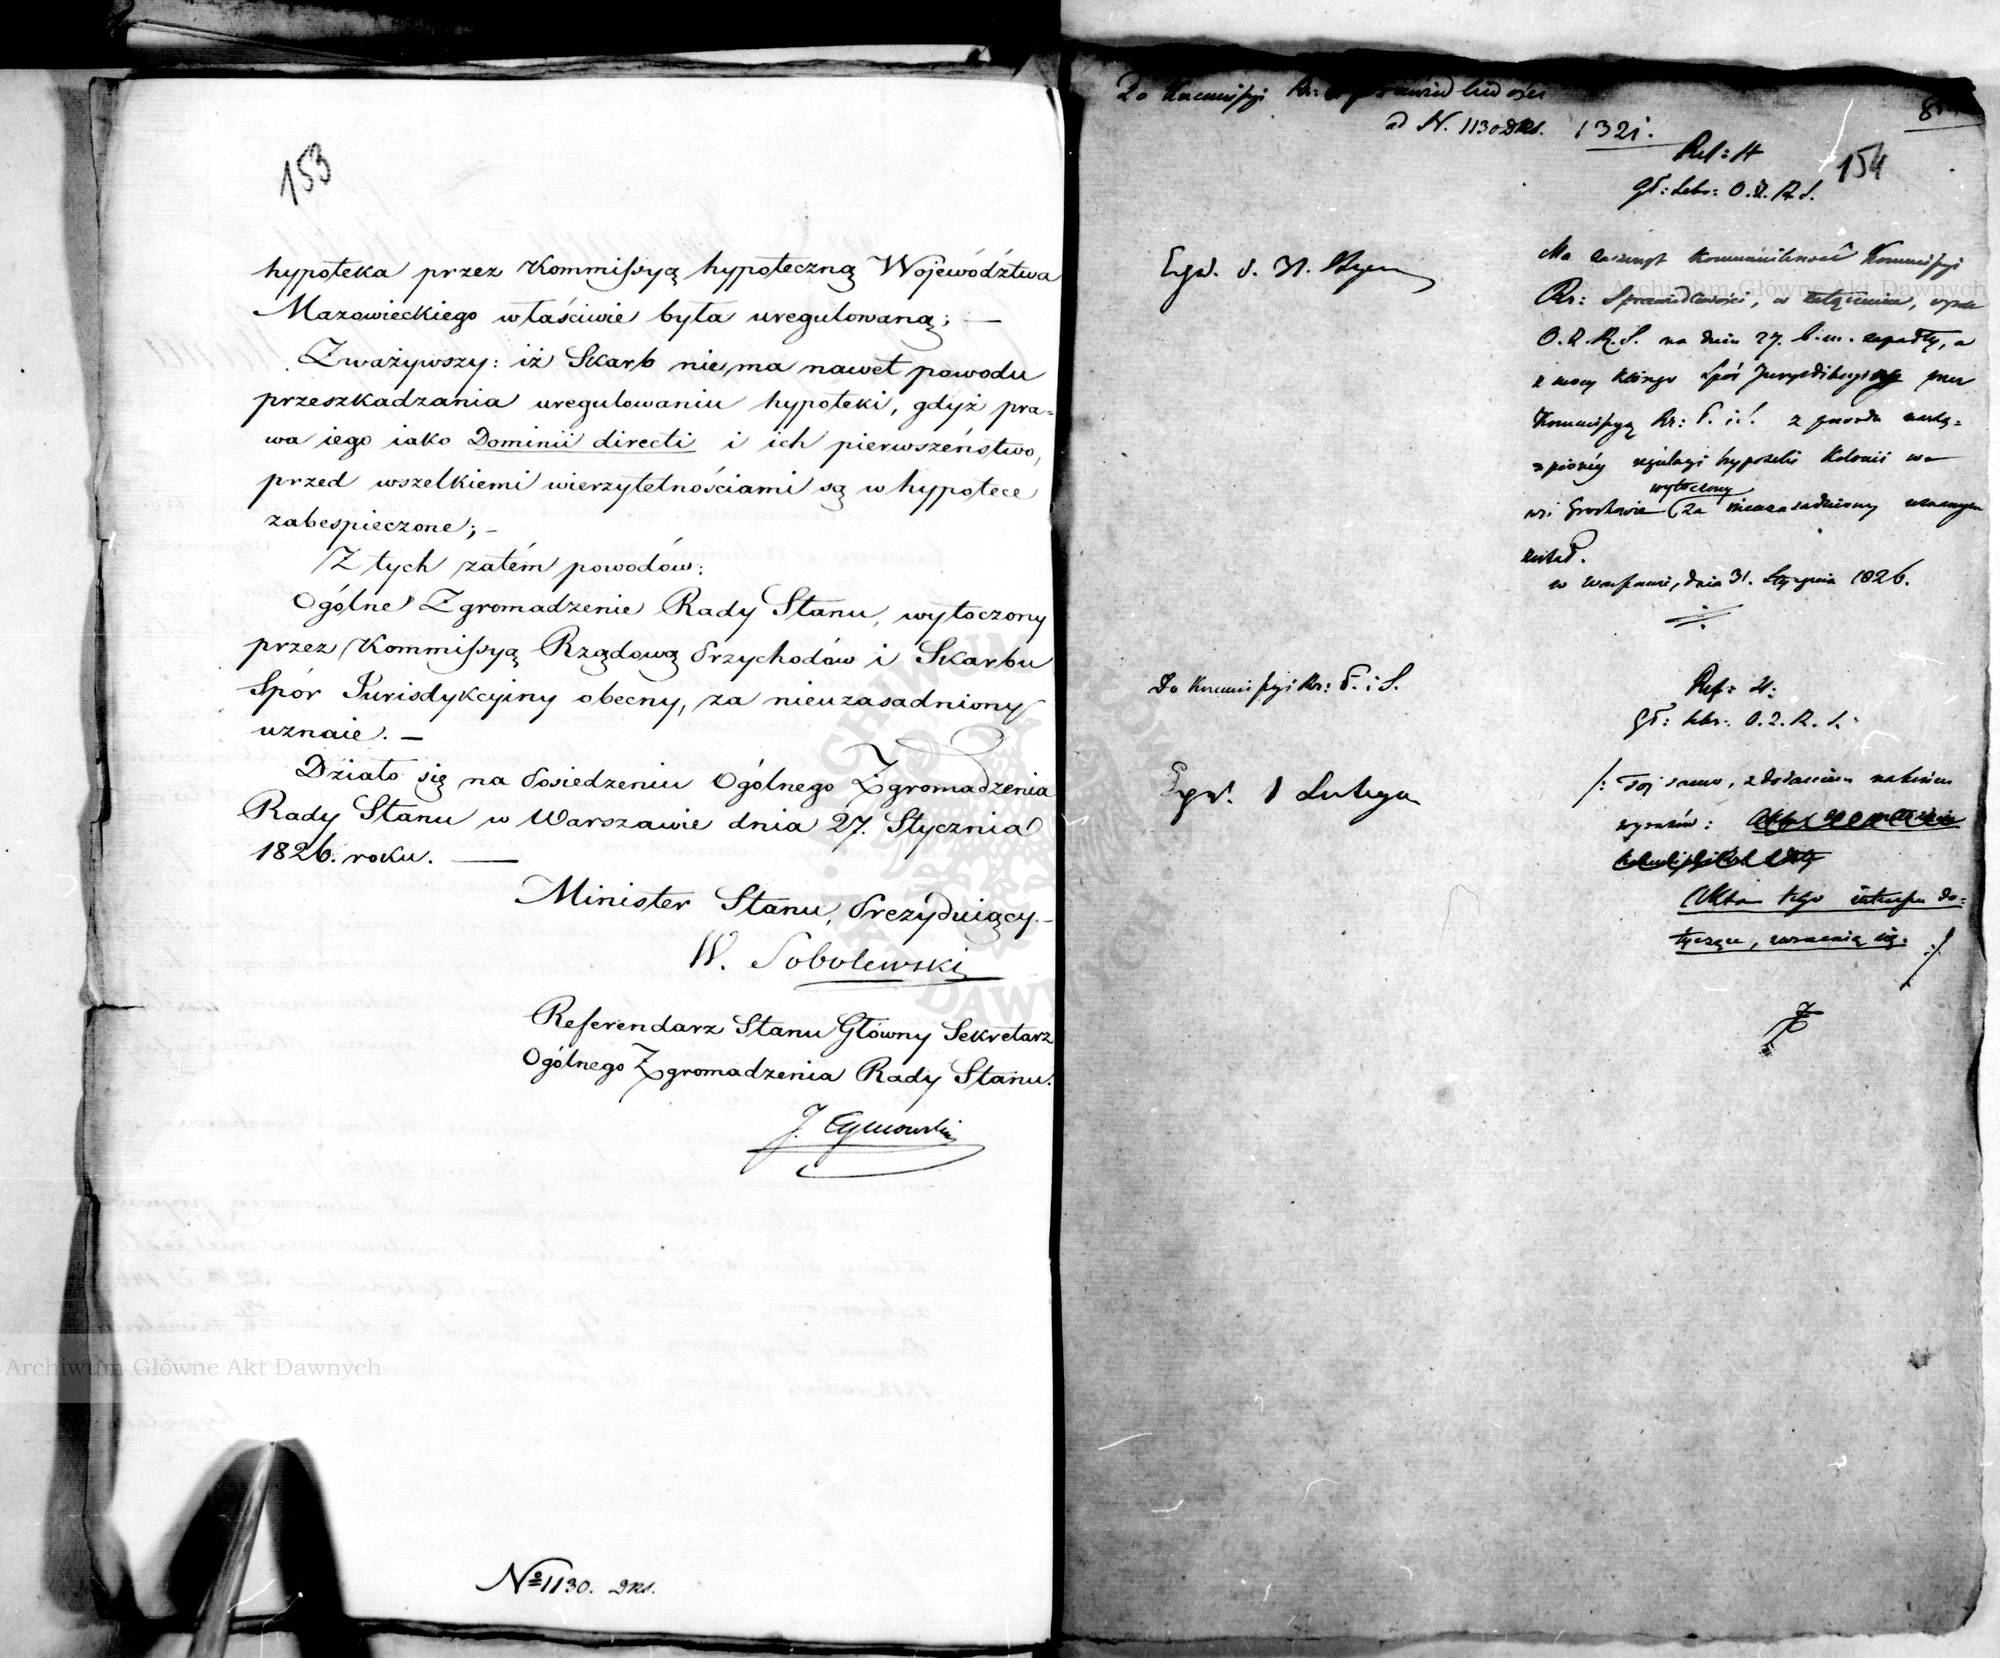 153
hypoteka przez Kommissyą hypoteczną Województwa
Mazowieckiego właściwie była uregulowaną; —
Zważywszy: iż Skarb nie ma nawet powodu
przeszkadzania uregulowaniu hypoteki, gdyż pra=
wa iego iako Dominii directi i ich pierwszeństwo,
przed wszelkiemi wierzytelnościami są w hypotece
zabespieczone; –
Z tych zatém powodów:
Ogólne Zgromadzenie Rady Stanu, wytoczony
przez Kommissyą Rządową Przychodów i Skarbu
Spór Jurisdykcyiny obecny, za nieuzasadniony
uznaie. –
Działo się na Posiedzeniu Ogólnego Zgromadzenia
Rady Stanu w Warszawie dnia 27. Stycznia
1826. roku. —
Minister Stanu, Prezyduiący. –
W. Sobolewski
Referendarz Stanu Główny Sekretarz
Ogólnego Zgromadzenia Rady Stanu.
J.
№ 1130. DRS.
Do Kommissyi Rz: Sprawiedliwości
ad N. 1130 DRS. 1321.
8
154
Ref: St
Gł: Sekr: O. Z. R. S.
Exp. d. 31. Stycz
Ma zaszczyt kommunikować Kommissyi
Rz: Sprawiedliwości, w załączeniu, wyrok
O. Z. R. S. na dniu 27. b. m. zapadły, a
z mocy którego Spór Jurysdikcyiny przez
Kommissyą Rz: P. i S. z powodu nastą=
pionéy regulacyi hypoteki Kolonii we
wsi Grochowie wytoczony za nieuzasadniony uznanym
został.
w Warszawie, dnia 31. Stycznia 1826.
Do Kommissyi Rz: P. i S.
Ref: St:
Gł: Sekr: O. Z. R. S.
Exp. 1 Lutego
/: Toż samo, z dodaniem na końcu
wyrazów:
Akta tego interesu do=
tyczące, zwracaią się. :/
Archiwum Główne Akt Dawnych
Archiwum Główne Akt Dawnych